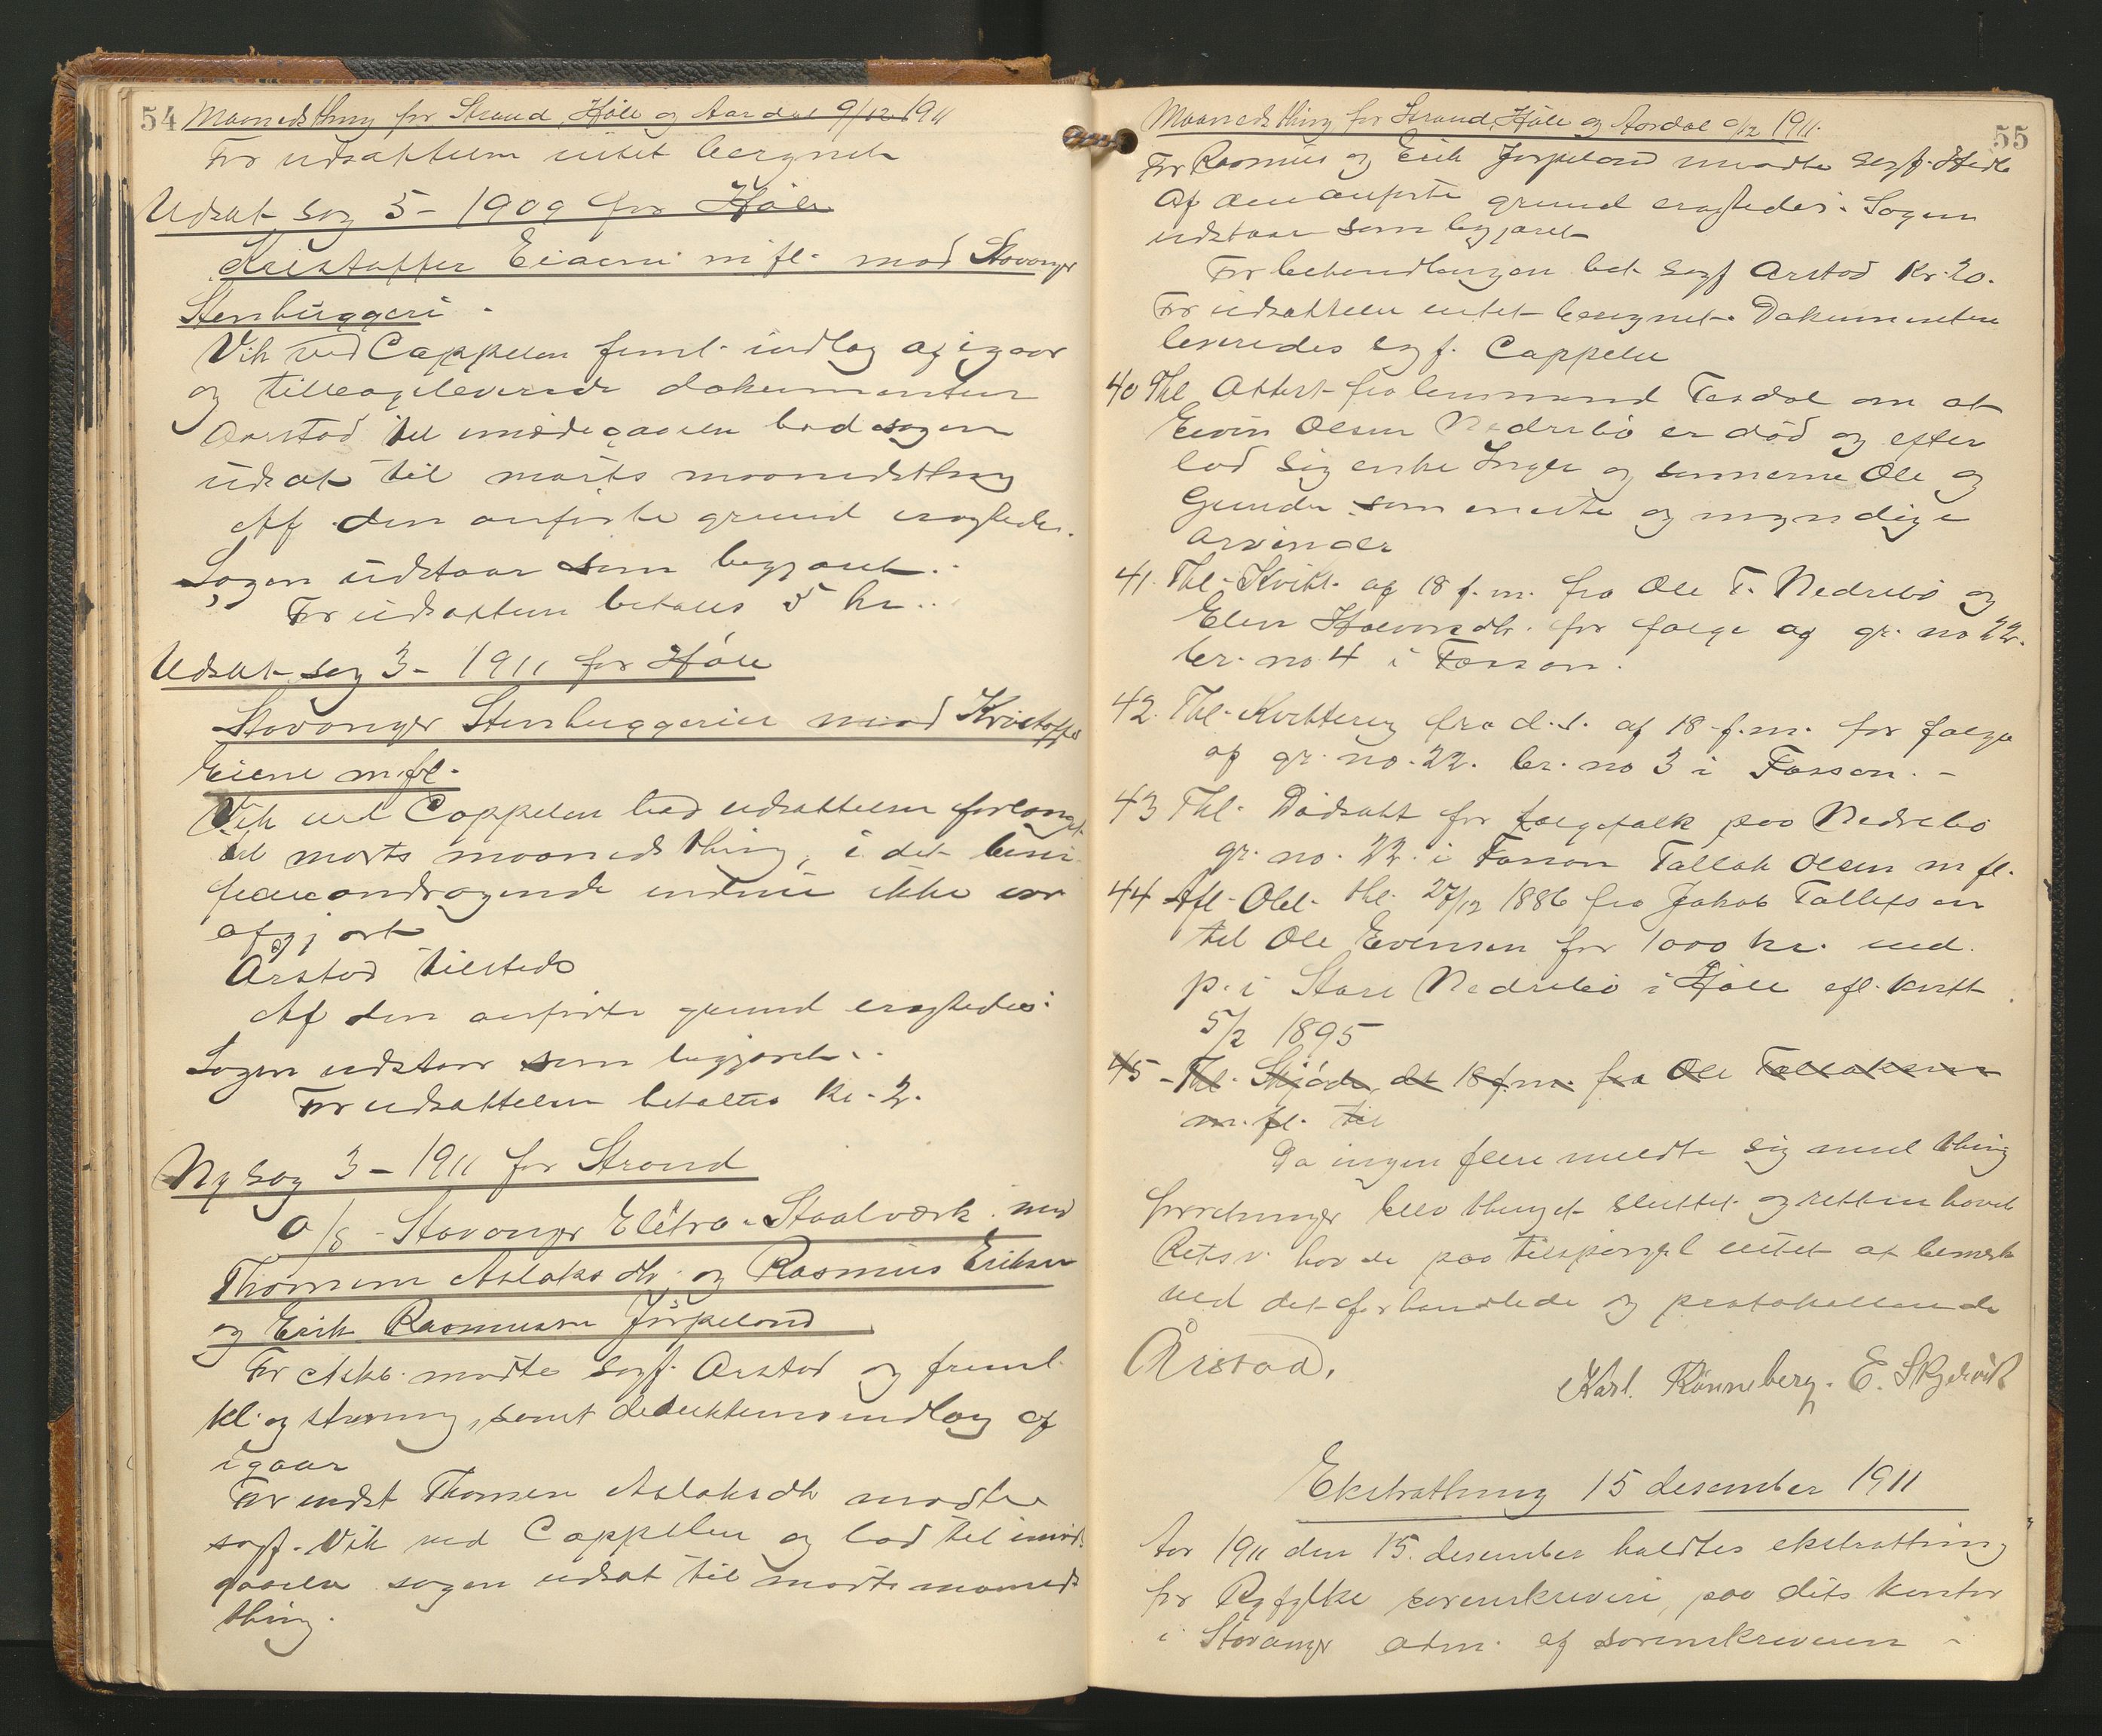 54 Maanedsthing for Strand, Høle og Aardal 9/12 1911
For udsættelsen intet beregnet
Udsat sag 5 - 1909 for Høle
Kristoffer Eiaene m fl. mod Stavanger
Stenhuggeri -
Vik ved Cappelen freml. indlæg af igaar
og tilbageleverede dokumenterne
Aarstad til imødegaaelse bad sagen
udsat til marts maanedsthing
Af den anførte grund eragtedes.
Sagen udstaar som begjæret..
For udsættelsen betales 5 kr..
Udsat sag 3 - 1911 for Høle
Stavanger Stenhuggerier mod Kristoffer
Eiene m. fl.
Vik ved Cappelen bad udsættelsen forlænget
til marts maanedsthing, i det beni-
ficieandragende endnu ikke var
afgjort
Arstad tilstede
Af den anførte grund eragtedes:
Sagen udstaar som begjæret..
For udsættelsen betaltes kr. 2.
Ny sag 3 - 1911 for Strand
a/s - Stavanger Elektro-Staalværk mod
Thomine Aslaksdtr. og Rasmus Eriksen
og Erik Rasmussen Jørpeland
For citks. mødte sagf. Arstad og freml.
kl. og stævning, samt deduktionsindlæg af
igaar
For indst Thomine Aslaksdtr mødte
sagf. Vik ved Cappelen og bad til imøde-
gaaelse sagen udsat til marts maaneds-
thing.
Maanedsthing for Strand, Høle og Aardal 9/12 1911. 55
For Rasmus og Erik Jørpeland mødte sagf. Hedle
Af den anførte grund eragtedes: Sagen
udstaar som begjæret
For behandlingen bet. sagf Arstad Kr. 20.
For udsættelsen intet beregnet. Dokumenterne
leveredes sagf. Cappelen
40 Thl Attest fra lensmand Tesdal om at
Eivin Olsen Nedrebø er død og efter
lod sig enke Inger og sønnerne Ole og
Gunder som eneste og myndige
arvinger
41. Thl. Kvitt. af 18 f.m. fra Ole T. Nedrebø og
Elen Halvorsdtr. for følge af gr. no 22.
br. no 4 i Fossan.
42. Thl. Kvittering fra d. s. af 18 f. m. for følge
af gr. no. 22. br. no 3 i Fossan. -
43 Thl. Dødsatt for følgefolk paa Nedrebø
gr. no. 22. i Fossan Tallak Olsen m fl.
44 Afl. Obl. thl. 27/12 1886 fra Jakob Tollefsen
til Ole Evensen for 1000 kr. med
p. i Store Nedrebø i Høle efl. kvitt.
5/2 1895
45 - Thl. Skjøde dt 18 f. m. fra Ole Tallaksen
m. fl. til
Da ingen flere meldte sig med thing
forretninger blev thinget sluttet og retten hævet
Retsv. havde paa tilspørgsel intet at bemerke
ved det forhandlede og protokollerede
Årstad.
Karl Rønneberg. E. Skjelvik
Ekstrathing 15 desember 1911
Aar 1911 den 15. desember holdtes ekstrathing
for Ryfylke sorenskriveri, paa dets kontor
i Stavanger adm. af sorenskriveren -